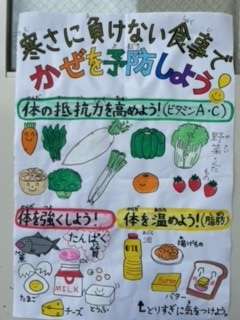 寒さに負けない食事で
かぜを予防しよう!
体の抵抗力を高めよう!(ビタミンA・C)
野菜
体を強くしよう!
体を温めよう!(脂肪)
たんぱく質
油
揚げもの
MILK
たまご
チーズ
とうふ
バター
とりすぎに気をつけよう。